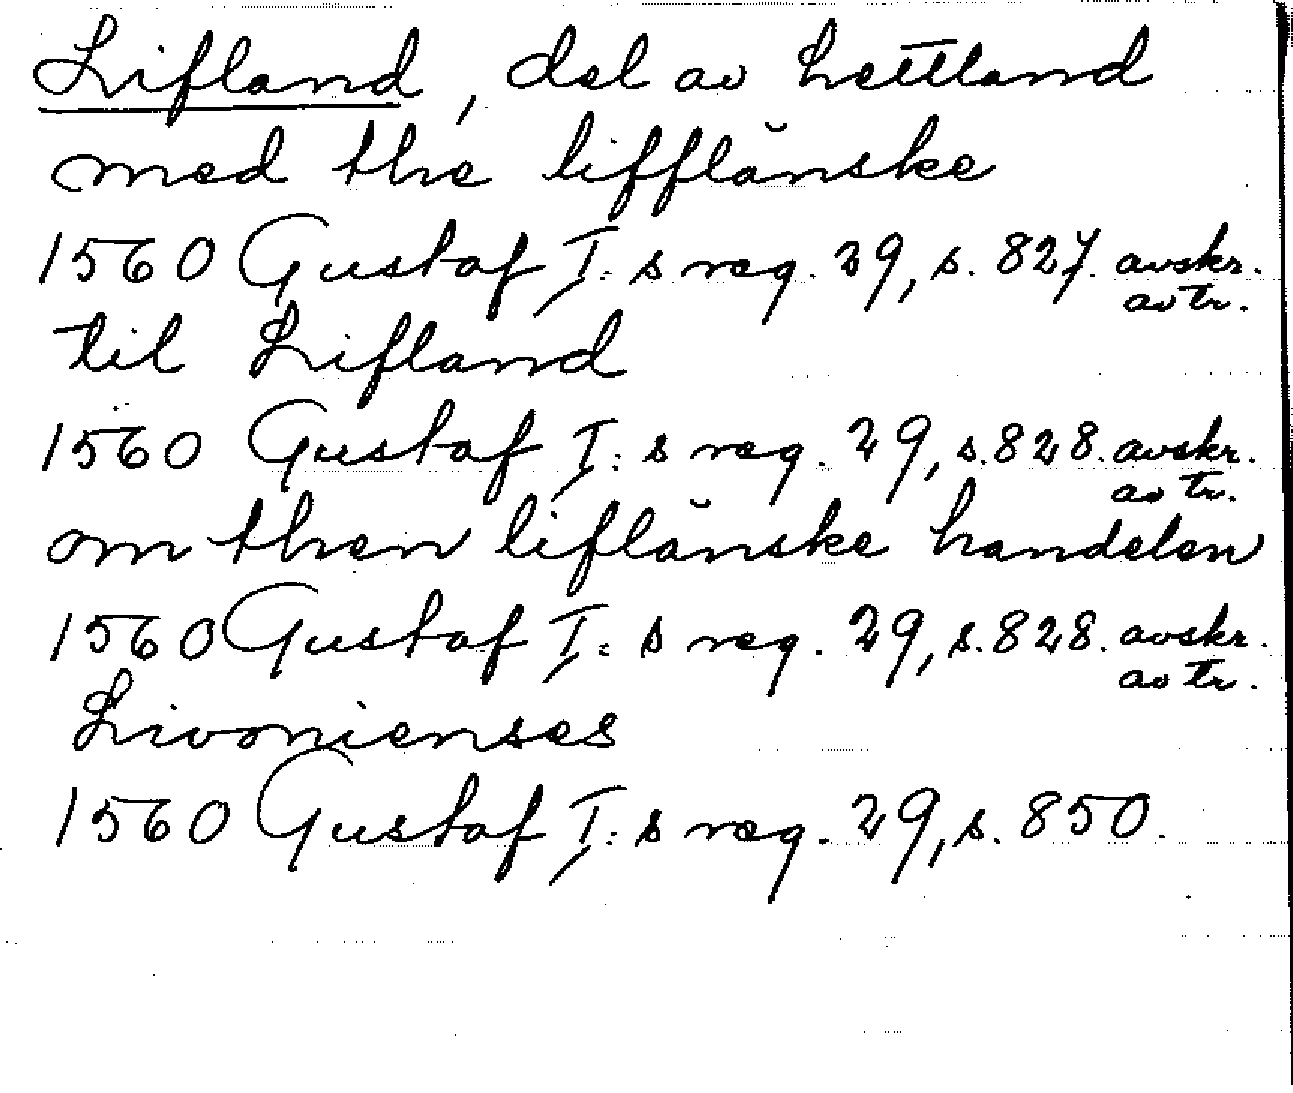 Lifland, del av Lettland
med the lifflänske
1560 Gustaf I:s reg. 29, s. 827. avskr.
av tr.
til Lifland
1560 Gustaf I:s reg. 29, s. 828. avskr.
av tr.
om then liflänske handelen
1560 Gustaf I:s reg. 29, s. 828. avskr.
av tr.
Livonienses
1560 Gustaf I:s reg. 29, s. 850.